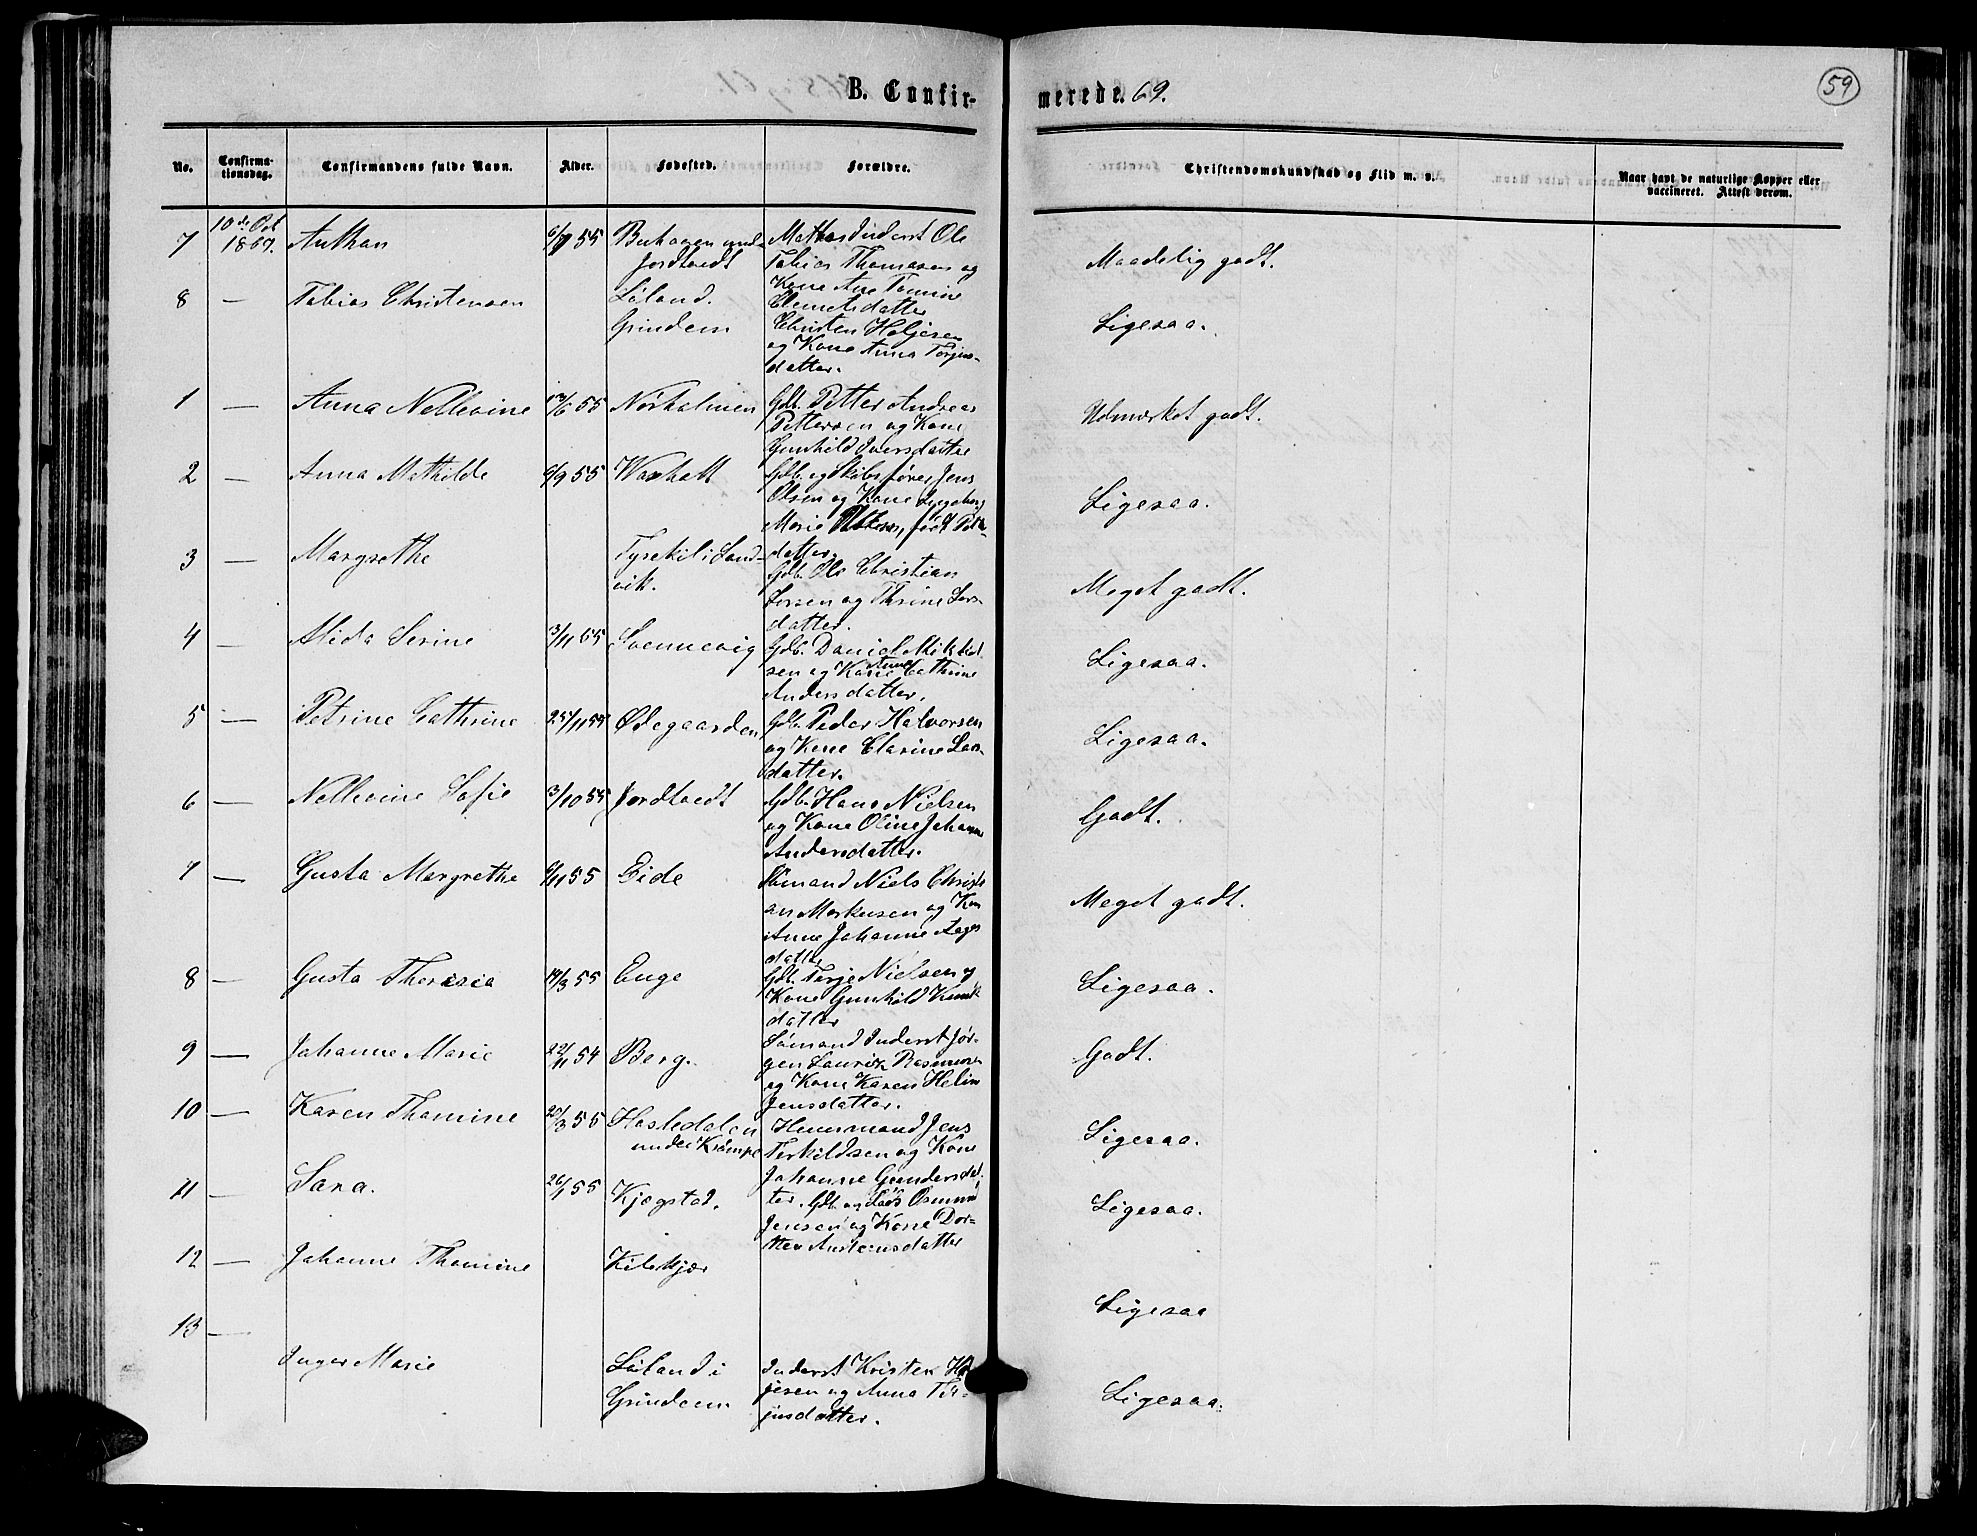 B. Confir-
merede. 69.
59
No.
Confirma-
tionsdag.
Confirmandens fulde Navn.
Alder.
Fødested.
Forældre.
Christendomskundskab og Flid m. v.
Naar havt de naturlige Kopper eller
vaccineret. Attest derom.
7
10de Oct
1869.
Anthan
6/7 55
Jordtvedt
Inderst Ole
Tobias Thomasen og
Kone Ane Tomine
Clemetsdatter
Maadelig godt.
8
—
Tobias Christensen
Leland.
Grindem
Christen Holjesen
og Kone Anna Torjus-
datter.
Ligesaa.
1
—
Anna Nellevine
55
Norholmen
Gdb. Petter Andreas
Pettersen og Kone
Gunhild Iversdatter
Udmærket godt.
2
—
Anna Mathilde
6/9 55
Gdb. og Skibsfører Jens
Olsen og Kone Ingeborg
Marie født
datter.
Ligesaa.
3
—
Margrethe
Tyrekil i Land-
vik.
Gdb. Ole Christian
Larsen og Thrine Lars-
datter.
Meget godt.
4
—
Alida Serine
3/11 55
Svennevig
Gdb. Daniel Mikkel-
sen og Kone Anne Cathrine
Andersdatter.
Ligesaa.
5
—
Petrine Cathrine
25/11 55
Ødegaarden
Gdb. Peder Halvorsen
og Kone Clarine Lars-
datter.
Ligesaa.
6
—
Nellevine Sofie
3/10 55
Jordtvedt
Gdb. Hans Nielsen
og Kone Oline Johanne
Andersdatter.
Godt.
7
—
Gusta Margrethe
6/11 55
Eide
Sømand Niels Christi
an Markusen og Kone
Anne Johanne Aages
datter
Meget godt.
8
—
Gusta Theresia
14/3 55
Enge
Gdb. Terje Nielsen og
Kone Gunhild Knuds
datter
Ligesaa.
9
—
Johanne Marie
22/11 54
Berg.
Sømand Inderst Jør-
gen Lauritz Rasmusen
og Kone Karen Heline
Jensdatter.
Godt.
10
—
Karen Thomine
20/3 55
Hasledalen
under Krømpe
Huusmand Jens
Terkildsen og Kone
Johanne Gundersdat-
ter.
Ligesaa.
11
—
Sara.
26/1 55
Kjøgstad.
Gdb. og Osmund
Jensen og Kone Dor-
thea Austensdatter
Ligesaa.
12
—
Johanne Thomine
Kilekjær
Ligesaa
13
—
Inger Marie
Leland i
Grindem.
Inderst Kristen Hol
jesen og Anna Tor-
jusdatter.
Ligesaa.